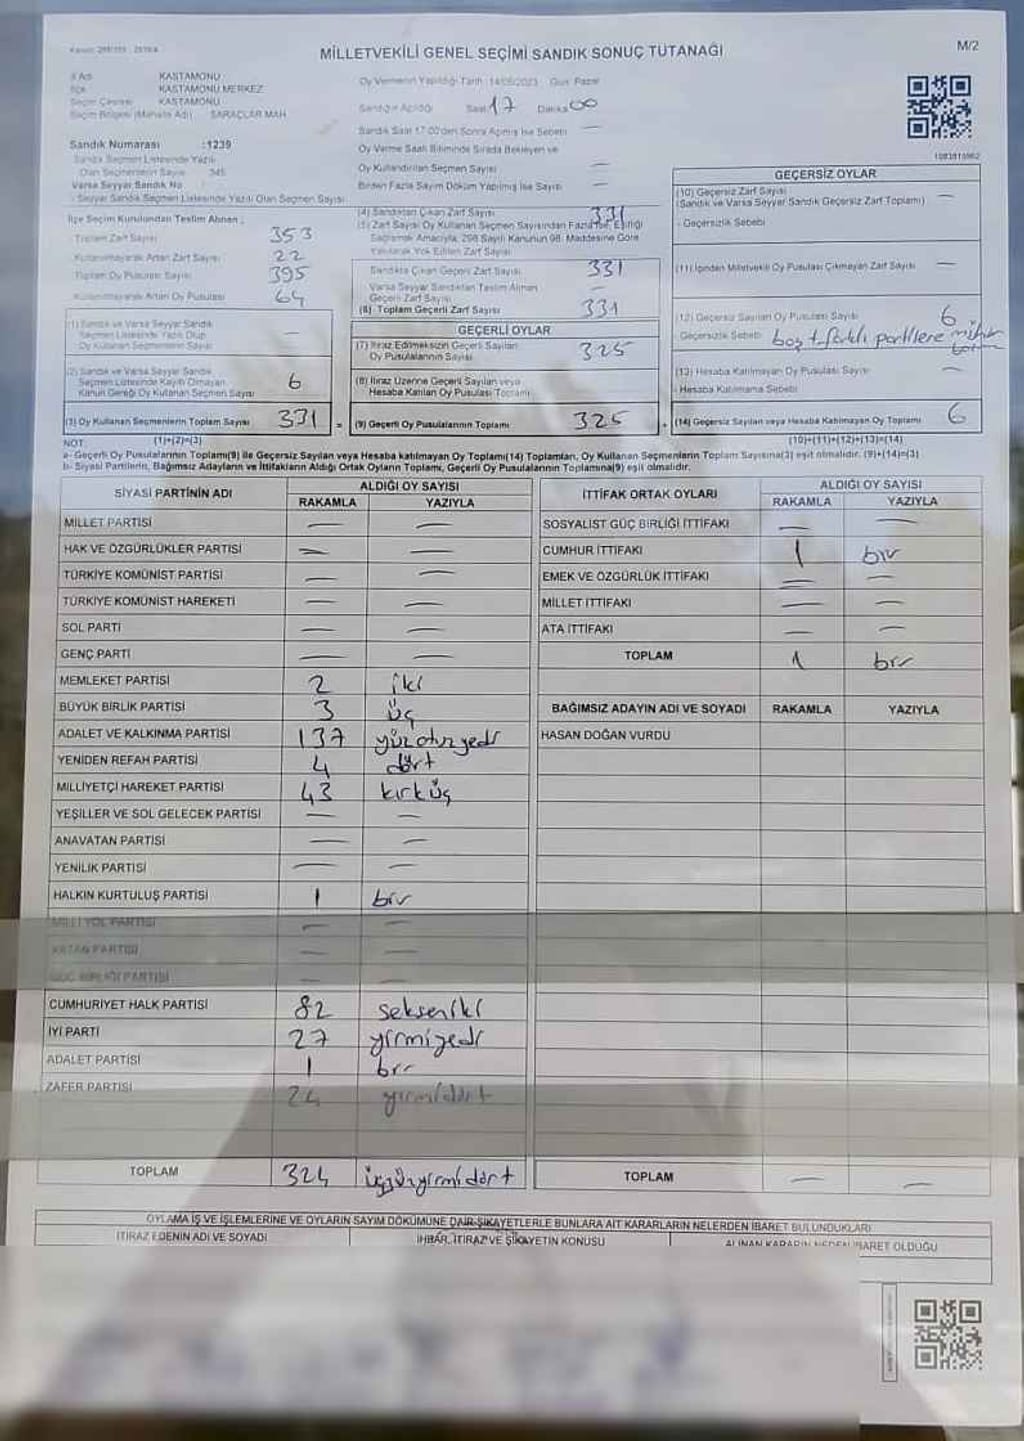 MİLLETVEKİLİ GENEL SEÇİMİ SANDIK SONUÇ TUTANAĞI
M/2
İl Adı KASTAMONU
İlçe KASTAMONU MERKEZ
Seçim Çevresi KASTAMONU
Seçim Bölgesi (Mahalle Adı) SARAÇLAR MAH
Sandık Numarası :1239
Sandık Seçmen Listesinde Yazılı
Olan Seçmenlerin Sayısı 345
Varsa Seyyar Sandık No
Seyyar Sandık Seçmen Listesinde Yazılı Olan Seçmen Sayısı
Oy Vermenin Yapıldığı Tarih 14/05/2023 Gün Pazar
Sandığın Açıldığı Saat 17 Dakika 00
Sandık Saat 17:00'den Sonra Açılmış İse Sebebi —
Oy Verme Saati Bitiminde Sırada Bekleyen ve
Oy Kullandırılan Seçmen Sayısı —
Birden Fazla Sayım Döküm Yapılmış İse Sayısı —
İlçe Seçim Kurulundan Teslim Alınan ;
Toplam Zarf Sayısı 353
Kullanılmayarak Artan Zarf Sayısı 22
Toplam Oy Pusulası Sayısı 395
Kullanılmayarak Artan Oy Pusulası 64
(1) Sandık ve Varsa Seyyar Sandık
Seçmen Listesinde Yazılı Olup
Oy Kullanan Seçmenlerin Sayısı —
(2) Sandık ve Varsa Seyyar Sandık
Seçmen Listesinde Kayıtlı Olmayan,
Kanun Gereği Oy Kullanan Seçmen Sayısı 6
(3) Oy Kullanan Seçmenlerin Toplam Sayısı 331 =
(4) Sandıktan Çıkan Zarf Sayısı 331
(5) Zarf Sayısı Oy Kullanan Seçmen Sayısından Fazla İse, Eşitliği
Sağlamak Amacıyla, 298 Sayılı Kanunun 98. Maddesine Göre
Yakılarak Yok Edilen Zarf Sayısı
Sandıkta Çıkan Geçerli Zarf Sayısı 331
Varsa Seyyar Sandıktan Teslim Alınan
Geçerli Zarf Sayısı —
(6) Toplam Geçerli Zarf Sayısı 331
GEÇERLİ OYLAR
(7) İtiraz Edilmeksizin Geçerli Sayılan
Oy Pusulalarının Sayısı 325
(8) İtiraz Üzerine Geçerli Sayılan veya
Hesaba Katılan Oy Pusulası Toplamı
(9) Geçerli Oy Pusulalarının Toplamı 325 +
GEÇERSİZ OYLAR
(10) Geçersiz Zarf Sayısı
(Sandık ve Varsa Seyyar Sandık Geçersiz Zarf Toplamı) —
- Geçersizlik Sebebi
(11) İçinden Milletvekili Oy Pusulası Çıkmayan Zarf Sayısı —
(12) Geçersiz Sayılan Oy Pusulası Sayısı 6
- Geçersizlik Sebebi boş + farklı partilere mühür
(13) Hesaba Katılmayan Oy Pusulası Sayısı —
- Hesaba Katılmama Sebebi
(14) Geçersiz Sayılan veya Hesaba Katılmayan Oy Toplamı 6
NOT: (1)+(2)=(3) (10)+(11)+(12)+(13)=(14)
a- Geçerli Oy Pusulalarının Toplamı(9) ile Geçersiz Sayılan veya Hesaba katılmayan Oy Toplamı(14) Toplamları, Oy Kullanan Seçmenlerin Toplam Sayısına(3) eşit olmalıdır. (9)+(14)=(3)
b- Siyasi Partilerin, Bağımsız Adayların ve İttifakların Aldığı Ortak Oyların Toplamı, Geçerli Oy Pusulalarının Toplamına(9) eşit olmalıdır.
SİYASİ PARTİNİN ADI ALDIĞI OY SAYISI
RAKAMLA YAZIYLA
MİLLET PARTİSİ — —
HAK VE ÖZGÜRLÜKLER PARTİSİ — —
TÜRKİYE KOMÜNİST PARTİSİ — —
TÜRKİYE KOMÜNİST HAREKETİ — —
SOL PARTİ — —
GENÇ PARTİ — —
MEMLEKET PARTİSİ 2 iki
BÜYÜK BİRLİK PARTİSİ 3 üç
ADALET VE KALKINMA PARTİSİ 137 yüzotuzyedi
YENİDEN REFAH PARTİSİ 4 dört
MİLLİYETÇİ HAREKET PARTİSİ 43 kırküç
YEŞİLLER VE SOL GELECEK PARTİSİ — —
ANAVATAN PARTİSİ — —
YENİLİK PARTİSİ — —
HALKIN KURTULUŞ PARTİSİ 1 bir
MİLLİ YOL PARTİSİ — —
VATAN PARTİSİ — —
GÜÇ BİRLİĞİ PARTİSİ — —
CUMHURİYET HALK PARTİSİ 82 sekseniki
İYİ PARTİ 27 yirmiyedi
ADALET PARTİSİ 1 bir
ZAFER PARTİSİ 24 yirmidört
TOPLAM 324 üçyüzyirmidört
İTTİFAK ORTAK OYLARI ALDIĞI OY SAYISI
RAKAMLA YAZIYLA
SOSYALİST GÜÇ BİRLİĞİ İTTİFAKI — —
CUMHUR İTTİFAKI 1 bir
EMEK VE ÖZGÜRLÜK İTTİFAKI — —
MİLLET İTTİFAKI — —
ATA İTTİFAKI — —
TOPLAM 1 bir
BAĞIMSIZ ADAYIN ADI VE SOYADI RAKAMLA YAZIYLA
HASAN DOĞAN VURDU
TOPLAM — —
OYLAMA İŞ VE İŞLEMLERİNE VE OYLARIN SAYIM DÖKÜMÜNE DAİR ŞİKAYETLERLE BUNLARA AİT KARARLARIN NELERDEN İBARET BULUNDUKLARI
İTİRAZ EDENİN ADI VE SOYADI İHBAR, İTİRAZ VE ŞİKAYETİN KONUSU ALINAN KARARIN NEDEN İBARET OLDUĞU